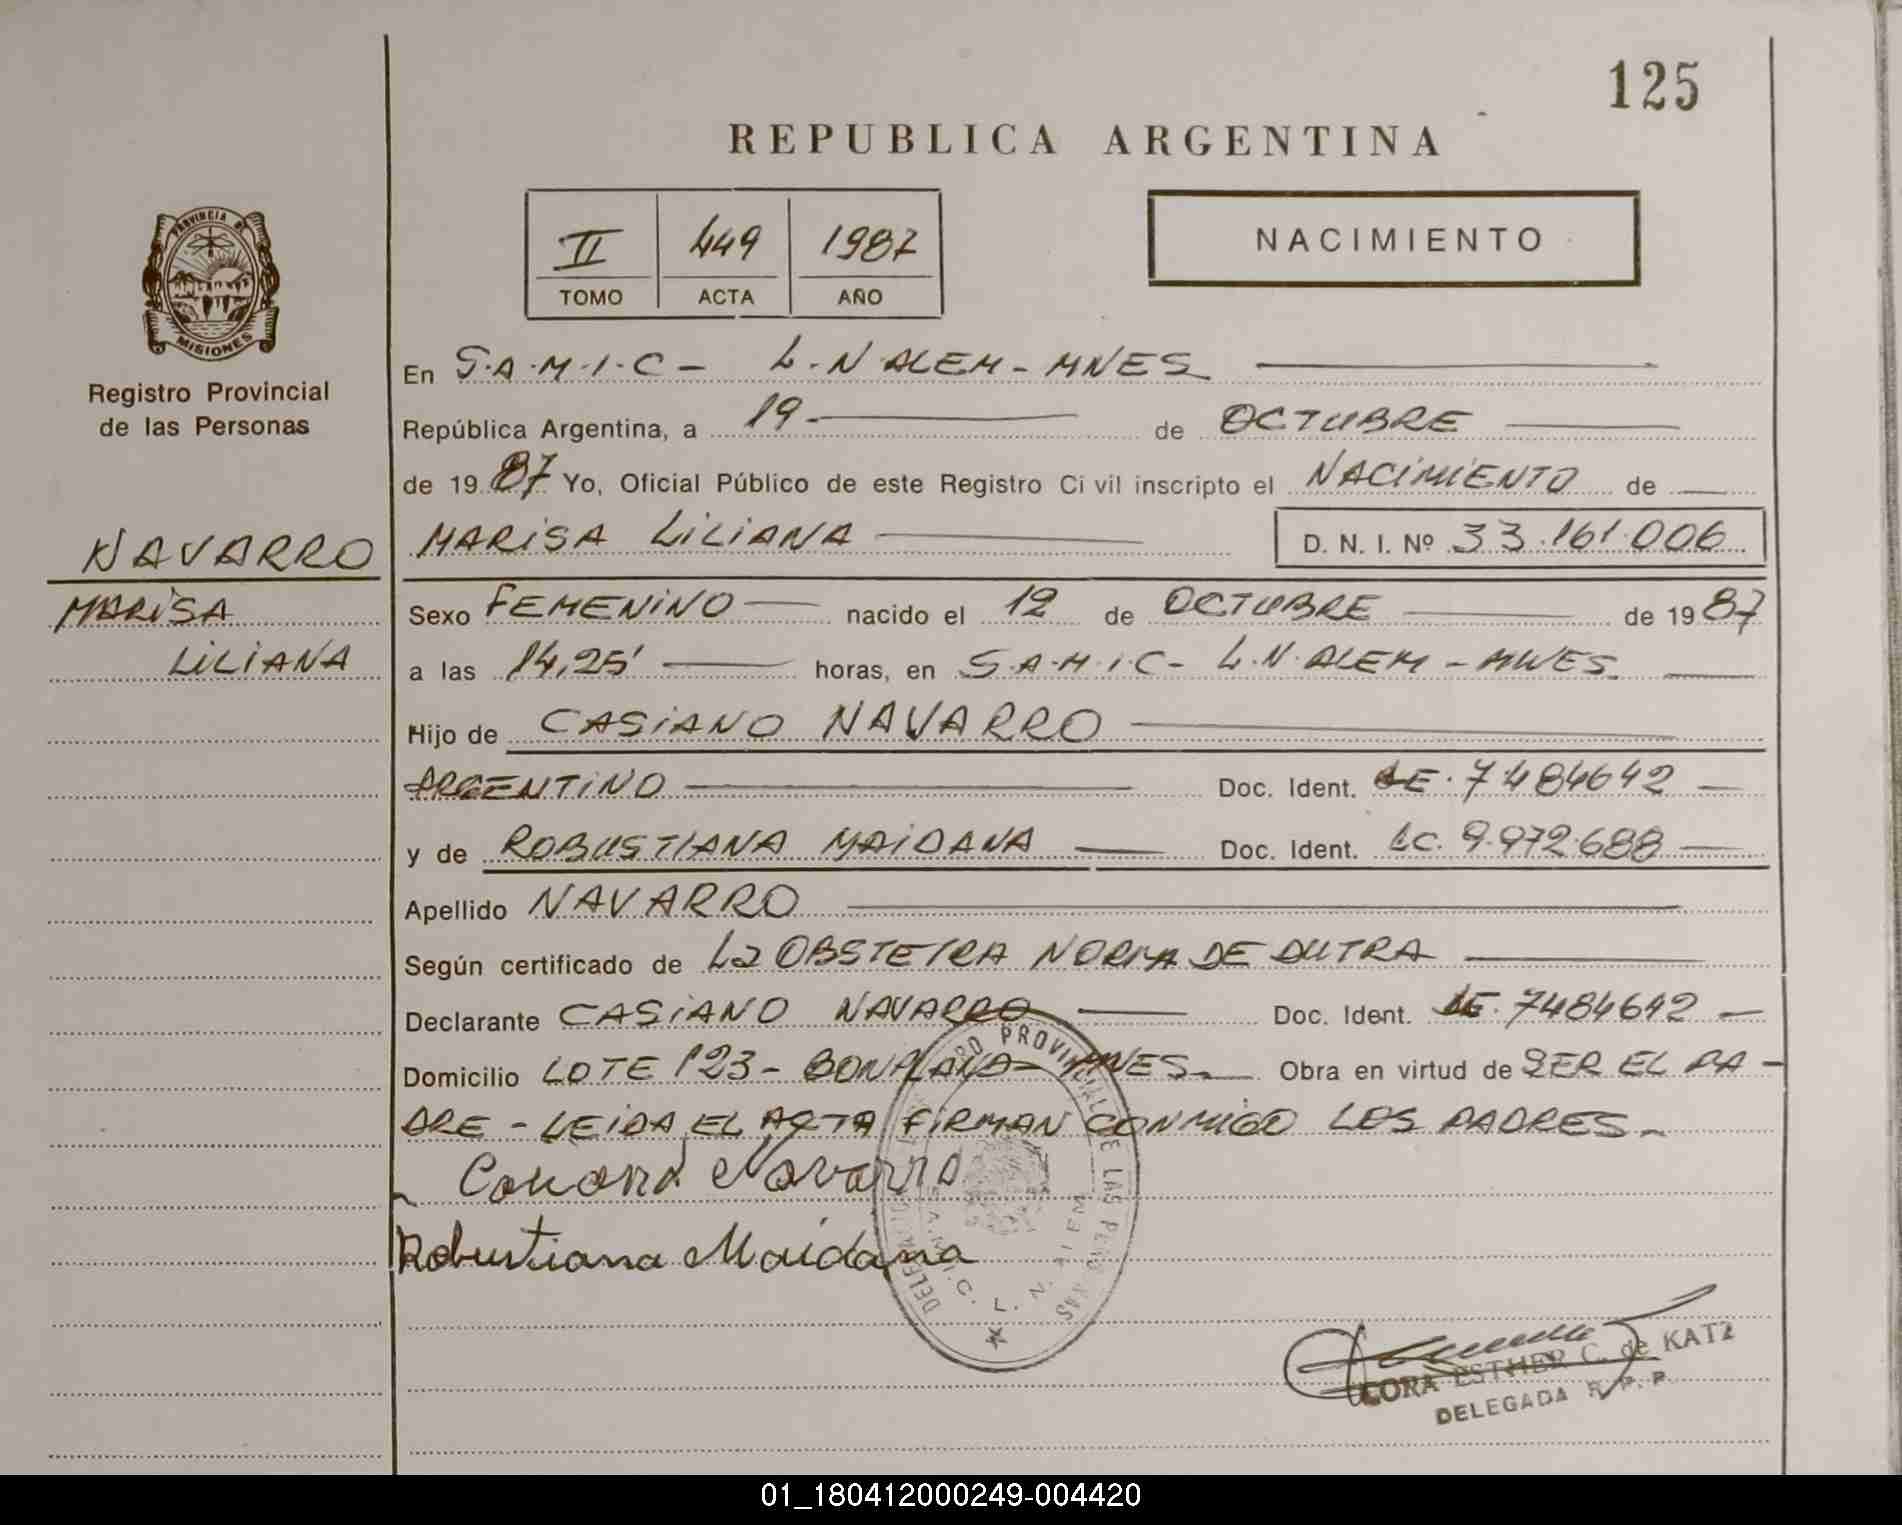 125
REPUBLICA ARGENTINA
II 449 1987
TOMO ACTA AÑO
NACIMIENTO
PROVINCIA DE
MISIONES
Registro Provincial
de las Personas
NAVARRO
MARISA
LILIANA
En S.A.M.I.C - L.N ALEM - MNES
República Argentina, a 19 - de OCTUBRE
de 1987 Yo, Oficial Público de este Registro Civil inscripto el NACIMIENTO de
MARISA LILIANA D. N. I. Nº 33.161.006
Sexo FEMENINO nacido el 12 de OCTUBRE de 1987
a las 14,25' horas, en S.A.M.I.C - L.N. ALEM - MNES.
Hijo de CASIANO NAVARRO
ARGENTINO Doc. Ident. LE. 7484642
y de ROBUSTIANA MAIDANA Doc. Ident. LC. 9.972.688
Apellido NAVARRO
Según certificado de La OBSTETRA NORMA DE DUTRA
Declarante CASIANO NAVARRO Doc. Ident. LE. 7484642
Domicilio LOTE 123 - BONPLAND - MNES. Obra en virtud de SER EL PA-
DRE - LEIDA EL ACTA FIRMAN CONMIGO LOS PADRES.
Navarro
Robustiana Maidana
PROVINCIAL DE LAS PERSONAS
S.A.M.I.C. L. N. ALEM
ESTHER C. de KATZ
DELEGADA R. P. P.
01_180412000249-004420